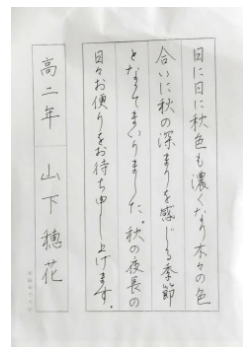 日に日に秋色も濃くなり木々の色
合いに秋の深まりを感じる季節
となってまいりました。秋の夜長の
日々お便りをお待ち申し上げます。
高二年 山下穂花